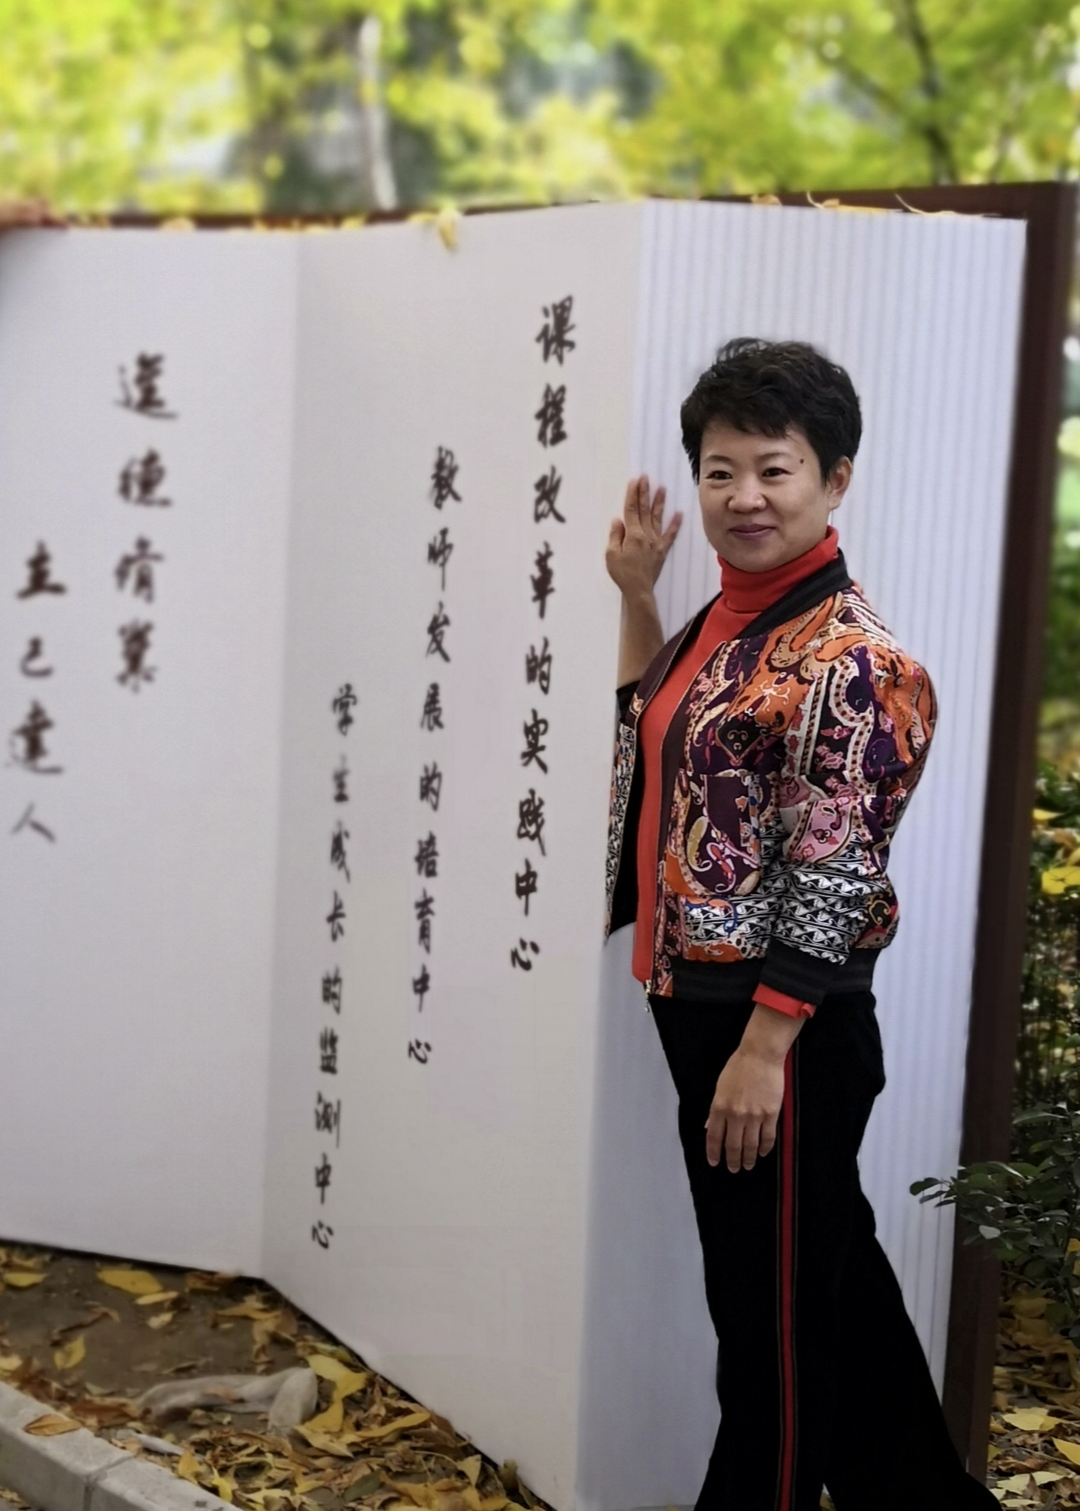 课程改革的实践中心
教师发展的培育中心
学生成长的监测中心
進德脩業
立己達人